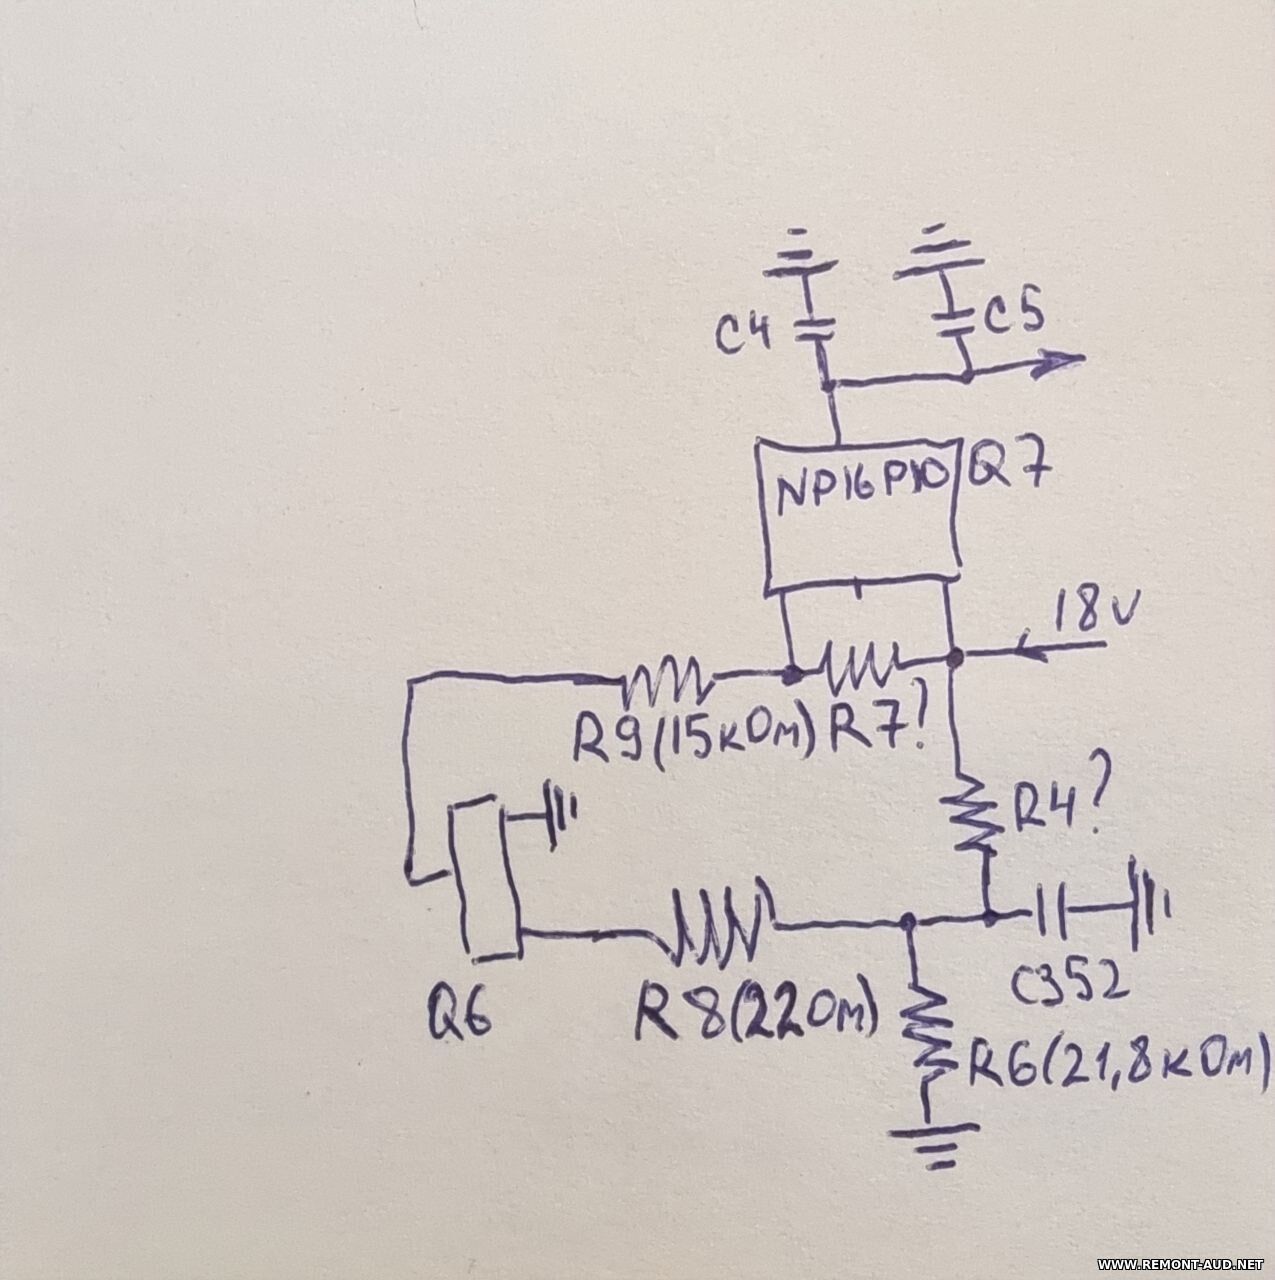 C4
C5
NP16P10
Q7
18V
R9(15кОм)
R7?
R4?
Q6
R8(22Ом)
C352
R6(21,8кОм)
WWW.REMONT-AUD.NET